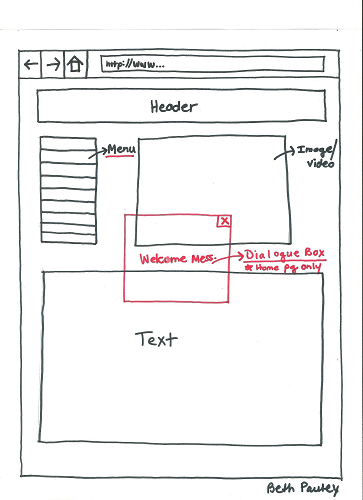 http://www...
Header
Menu
Image/
Video
X
Welcome Mess.
Dialogue Box
* Home pg only
Text
Beth Pauley